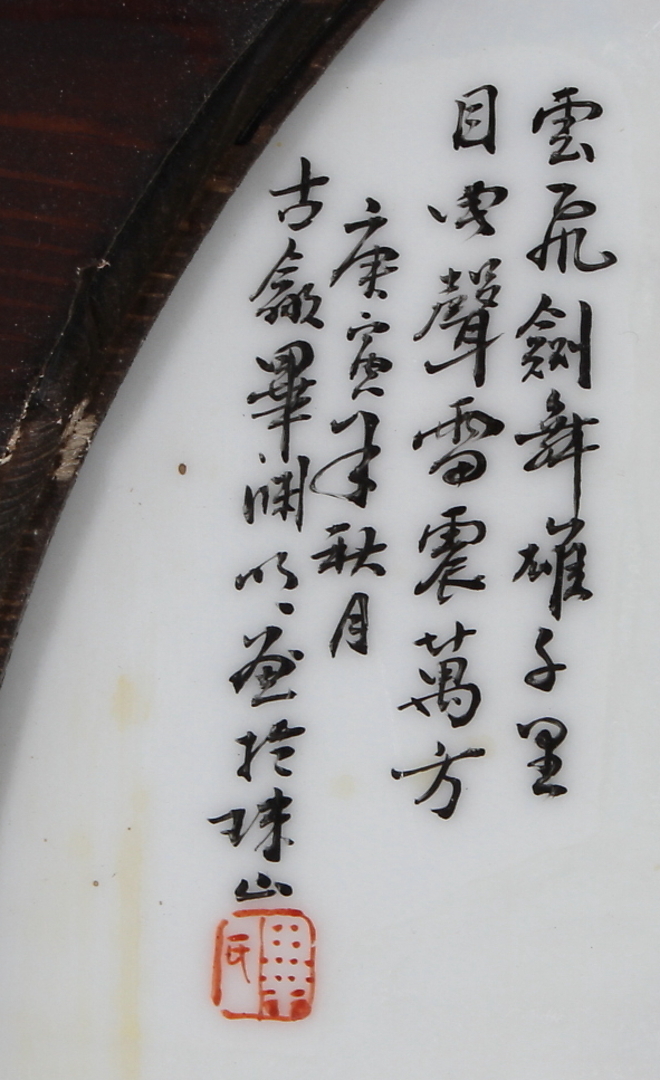 雲飛劍舞雄千里
目电聲雷震萬方
庚寅年秋月
古歙畢渊明畫於珠山
畢氏